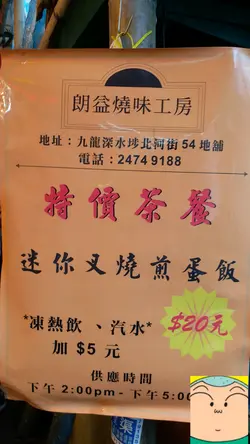 朗益燒味工房
地址：九龍深水埗北河街54地舖
電話：2474 9188
特價茶餐
迷你叉燒煎蛋飯
$20元
*凍熱飲、汽水*
加 $5 元
供應時間
下午 2:00pm - 下午 5:00